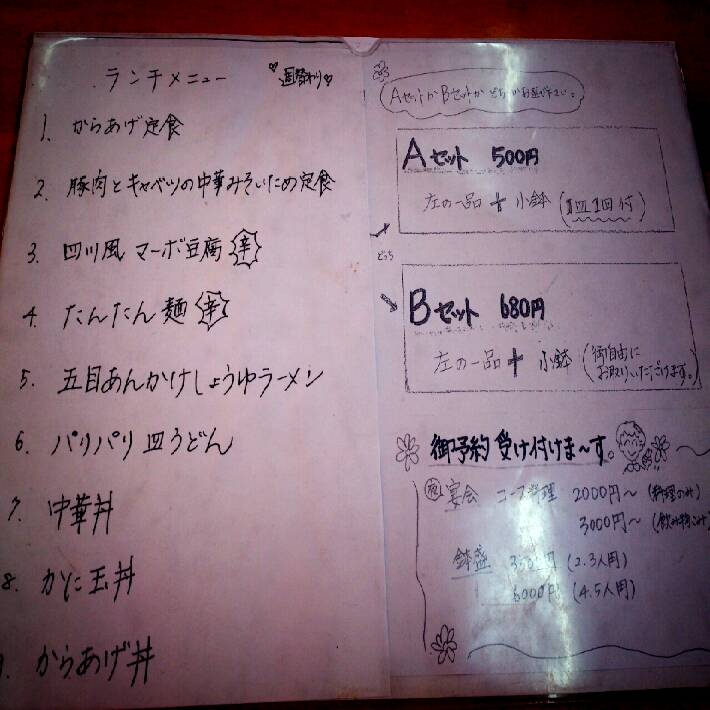 ランチメニュー
週替わり
1. からあげ定食
2. 豚肉とキャベツの中華みそいため定食
3. 四川風 マーボ豆腐 辛
4. たんたん麺 辛
5. 五目あんかけしょうゆラーメン
6. パリパリ皿うどん
7. 中華丼
8. かに玉丼
9. からあげ丼
AセットかBセットか どちらかお選び下さい。
Aセット 500円
左の一品 + 小鉢 (1皿1回付)
どっち
Bセット 680円
左の一品 + 小鉢 (御自由に
お取りいただけます。)
御予約 受け付けま~す。
宴会 コース料理 2000円~ (料理のみ)
3000円~ (飲み物こみ)
鉢盛 3500円 (2.3人用)
6000円 (4.5人用)